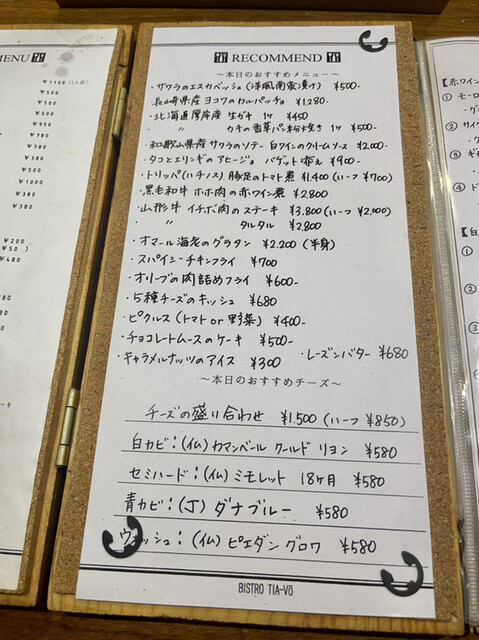 MENU
¥1100(1人前)
¥500
¥500
¥500
¥380
¥380
¥380
¥500
¥1000
¥380
¥380
¥200
¥50)
¥480
RECOMMEND
～本日のおすすめメニュー～
・サワラのエスカベッシュ(洋風南蛮漬け) ¥500-
・長崎県産 ヨコワのカルパッチョ ¥1,280-
・北海道厚岸産 生ガキ 1ヶ ¥450
・ 〃 カキの香草パン粉焼き 1ヶ ¥500-
・和歌山県産サワラのソテー 白ワインのクリームソース ¥2.000-
・タコとエリンギのアヒージョ バゲット添え ¥900-
・トリッパ(ハチノス)豚足のトマト煮 ¥1,400 (ハーフ ¥700)
・黒毛和牛 ホホ肉の赤ワイン煮 ¥2.800
・山形牛 イチボ肉のステーキ ¥3.800 (ハーフ ¥2,000)
・ 〃 タルタル ¥2.800
・オマール海老のグラタン ¥2.200 (半身)
・スパイシーチキンフライ ¥700
・オリーブの肉詰めフライ ¥600-
・5種チーズのキッシュ ¥680
・ピクルス(トマト or 野菜) ¥400-
・チョコレートムースのケーキ ¥500-
・キャラメルナッツのアイス ¥300 ・レーズンバター ¥680
～本日のおすすめチーズ～
チーズの盛り合わせ ¥1.500 (ハーフ ¥850)
白カビ:(仏)カマンベール クールド リヨン ¥580
セミハード:(仏)ミモレット 18ヶ月 ¥580
青カビ:(J)ダナブルー ¥580
ウォッシュ:(仏)ピエダングロワ ¥580
BISTRO TIA-Vo
【赤ワイン
① モーロ
② サイク
③
④ ド
【白
①
②
③
④